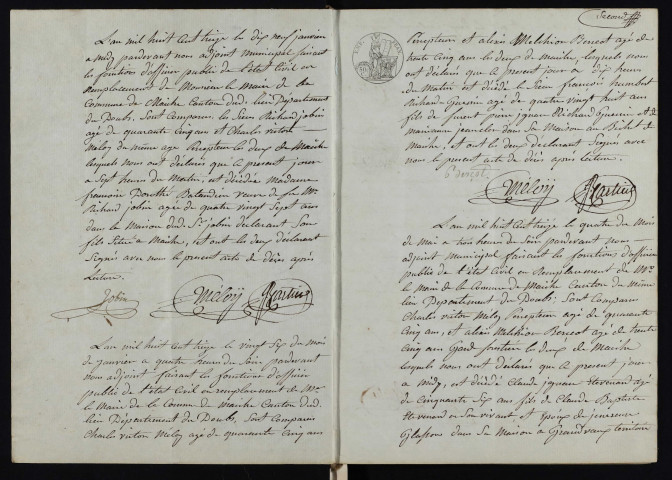 L'an mil huit cent treize le dix neuf janvier
a midy pardevant nous adjoint municipal faisant
les fonctions d'officier public de l'état Civil en
remplacement de Monsieur le Maire de la
Commune de Maîche Canton dud. lieu Département
du Doubs, sont Comparus les Sieur Richard jobin
agé de quarante Cinq ans et Charles victor
Meloÿ du même age Percepteur les deux de Maîche
lesquels nous ont déclarés que a présent jour
a Sept heures du Matin, est décédée Madame
françoise Dorothé veuve de feu Mr
Richard jobin agée de quatre vingt Sept ans
dans la Maison dud. Sr jobin déclarant Son
fils Située a Maîche, et ont les deux déclarant
Signés avec nous le present acte de décès après
Lecture.
Jobin Meloÿ
L'an mil huit cent treize le vingt Six du mois
de janvier a quatre heures du Soir pardevant
nous adjoint faisant les fonctions d'officier
public de l'état Civil en remplacement de Mr
le Maire de la Comune de Maîche Canton dud.
lieu Département du Doubs, Sont Comparus
Charles victor Meloÿ agé de quarante Cinq ans
Second
Percepteur et alexis Melchior Bercot agé de
trente Cinq ans les deux de Maîche, lesquels nous
ont déclarés que a present jour a dix heures
du Matin est décédé le Sieur françois humbert
Richard Guenin agé de quatre vingt huit ans
fils de furent pierre ignace Richard Guenin et de
marianne dans Sa Maison au
Maîche, et ont les deux déclarant Signés avec
nous le present acte de décès après lecture.
Bercot Meloÿ
L'an mil huit cent treize le quatre du Mois
de Mai a trois heures du Soir pardevant nous
adjoint municipal faisant les fonctions d'officier
public de l'état Civil en Remplacement de Mr
le Maire de la Commune de Maîche Canton du même
lieu Département du Doubs, Sont Comparus
Charles victor Meloÿ Percepteur agé de quarante
Cinq ans, et alexis Melchior Bercot agé de trente
Cinq ans Garde les deux de Maîche
lesquels nous ont déclarés que a present jour
a Midy, est décédé Claude ignace agé
de Cinquante Six ans fils de Claude Baptiste
en Son vivant et Epoux de
dans Sa Maison a territoire